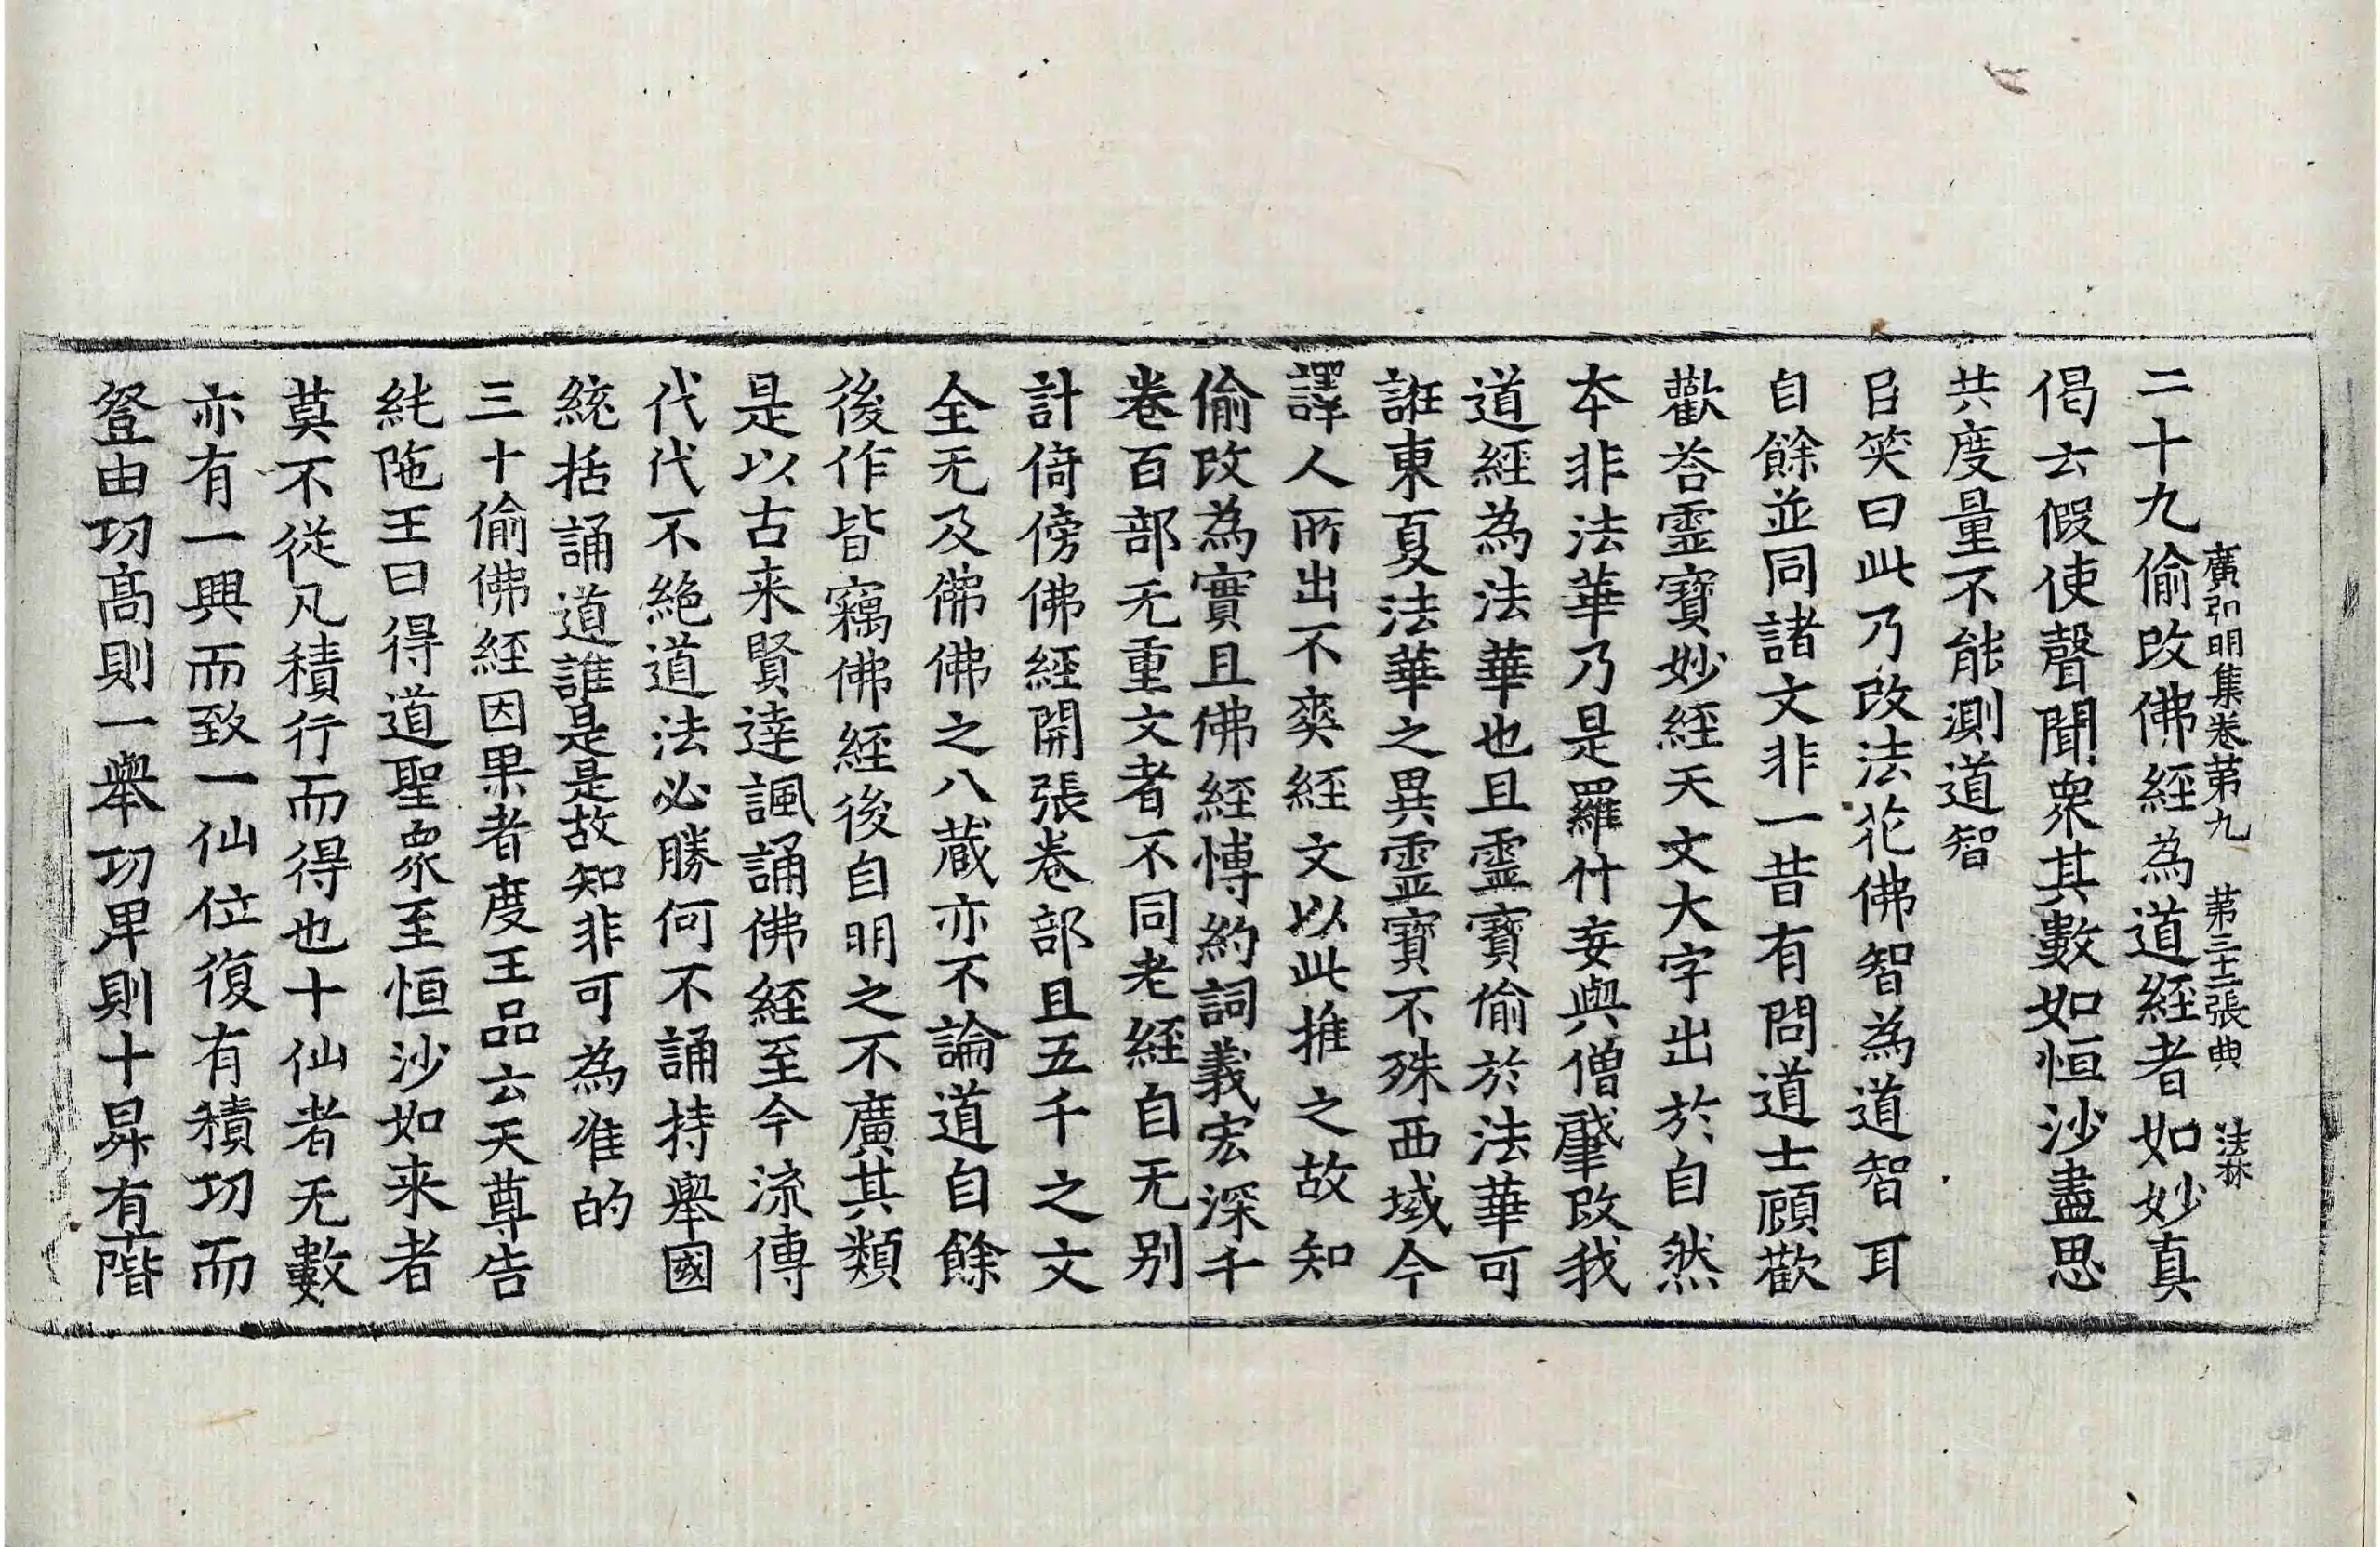 二十九偷改佛經為道經者如妙真
廣弘明集卷第九 第三十二張典 法林
偈云假使聲聞眾其數如恒沙盡思
共度量不能測道智
臣笑曰此乃改法花佛智為道智耳
自餘並同諸文非一昔有問道士顧歡
歡荅霊寶妙經天文大字出於自然
本非法華乃是羅什妄與僧肇改我
道經為法華也且霊寶偷於法華可
誑東夏法華之異霊寶不殊西域今
譯人所出不爽經文以此推之故知
偷改為實且佛經博約詞義宏深千
卷百部无重文者不同老經自无别
計倚傍佛經開張卷部且五千之文
全无及佛佛之八蔵亦不論道自餘
後作皆竊佛經後自明之不廣其類
是以古来賢達諷誦佛經至今流傳
代代不絶道法必勝何不誦持舉國
統括誦道誰是是故知非可為准的
三十偷佛經因果者度王品云天尊告
純陁王曰得道聖眾至恒沙如来者
莫不從凡積行而得也十仙者无數
亦有一興而致一仙位復有積功而
登由功髙則一舉功卑則十昇有十階